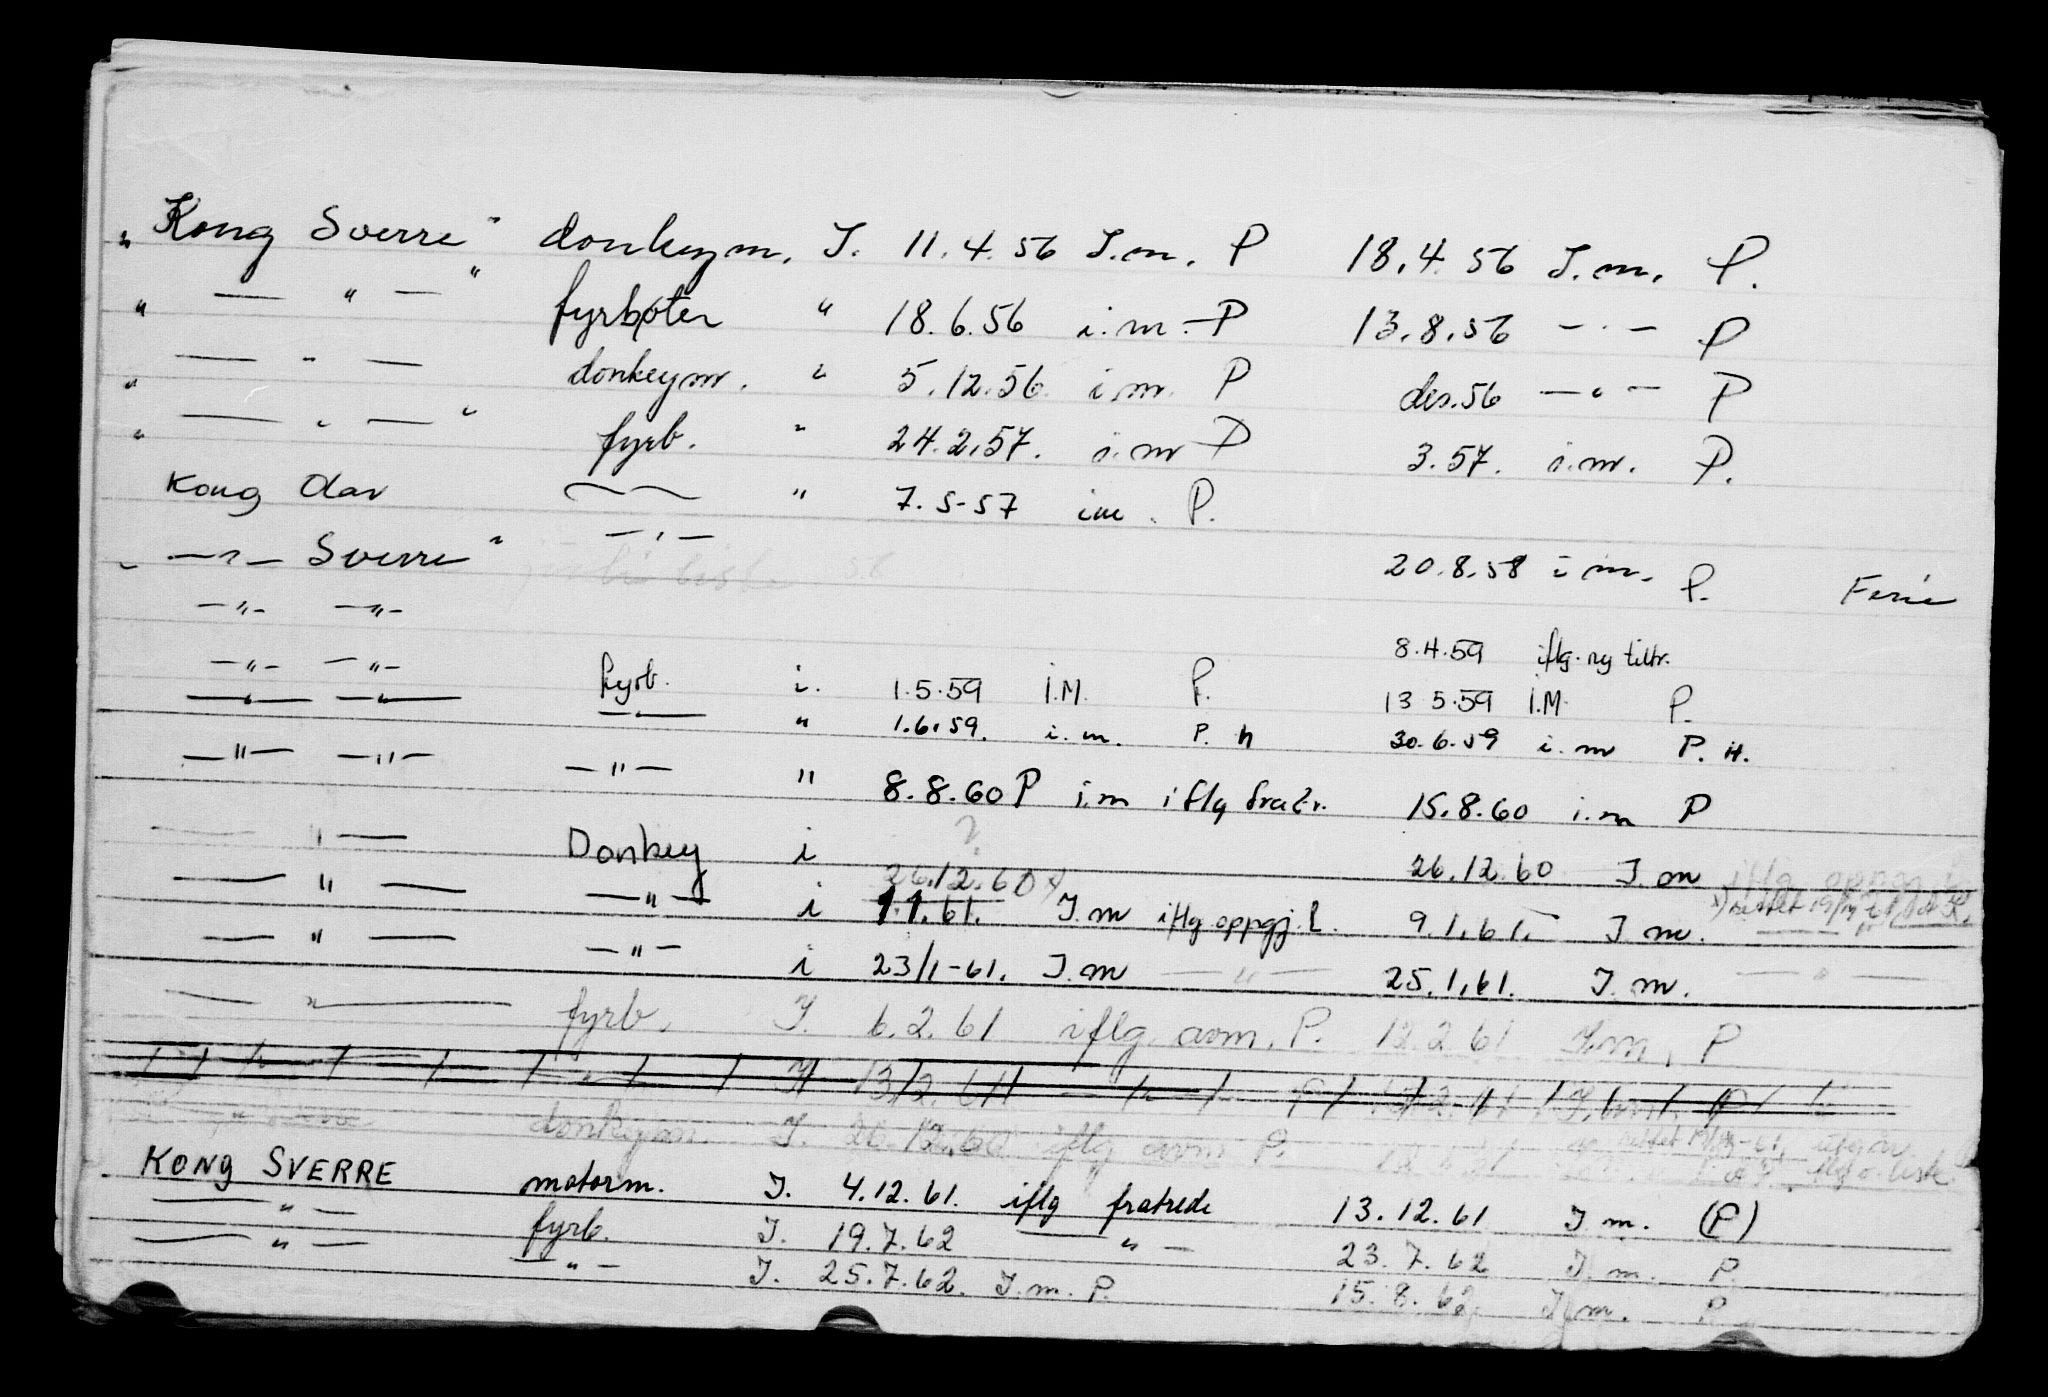 „ Kong Sverre " donkeym. I. 11.4.56 I.m. P 18.4.56 I.m. P.
" — " — " fyrbøter " 18.6.56 i.m. P 13.8.56 — · — P
" — " — donkeym. " 5.12.56 i.m. P des.56 — " — P
" — " — " fyrb. " 24.2.57. i.m P 3.57. i.m. P.
Kong Olav " 7.5-57 im. P.
„ — " — Sverre " — " — 20.8.58 i m. P. Ferie
— " — — " — 8.4.59 iflg. ny tiltr.
— " — — " — fyrb. i. 1.5.59 I.M. P. 13 5.59 I.M. P.
— " — — " — — " — " 1.6.59. i.m. P. H 30.6.59 i.m P. H.
— " — — " — — " — " 8.8.60 P i.m iflg fratr. 15.8.60 i.m P
— " — Donkey i ? 26.12.60 I.m
26.12.60 x)
— " — — " — i 1.1.61. I.m iflg oppgj. 9.1.61. I m.
— " — — " — i 23/1-61. I.m — " — 25.1.61. I.m. — " —
— " — fyrb. I. 6.2.61 iflg. avm. P. 12.2.61 I.m. P
— " — — " — I 13/2.61
donkeym. I. 26.12.60 iflg avm P.
KONG SVERRE motorm. I. 4.12.61. iflg fratrede 13.12.61 I m. (P)
— " — fyrb. I. 19.7.62 — " — 23.7.62 I.m. P.
— " — — " — I. 25.7.62. I.m. P. 15.8.62 I.m. P.